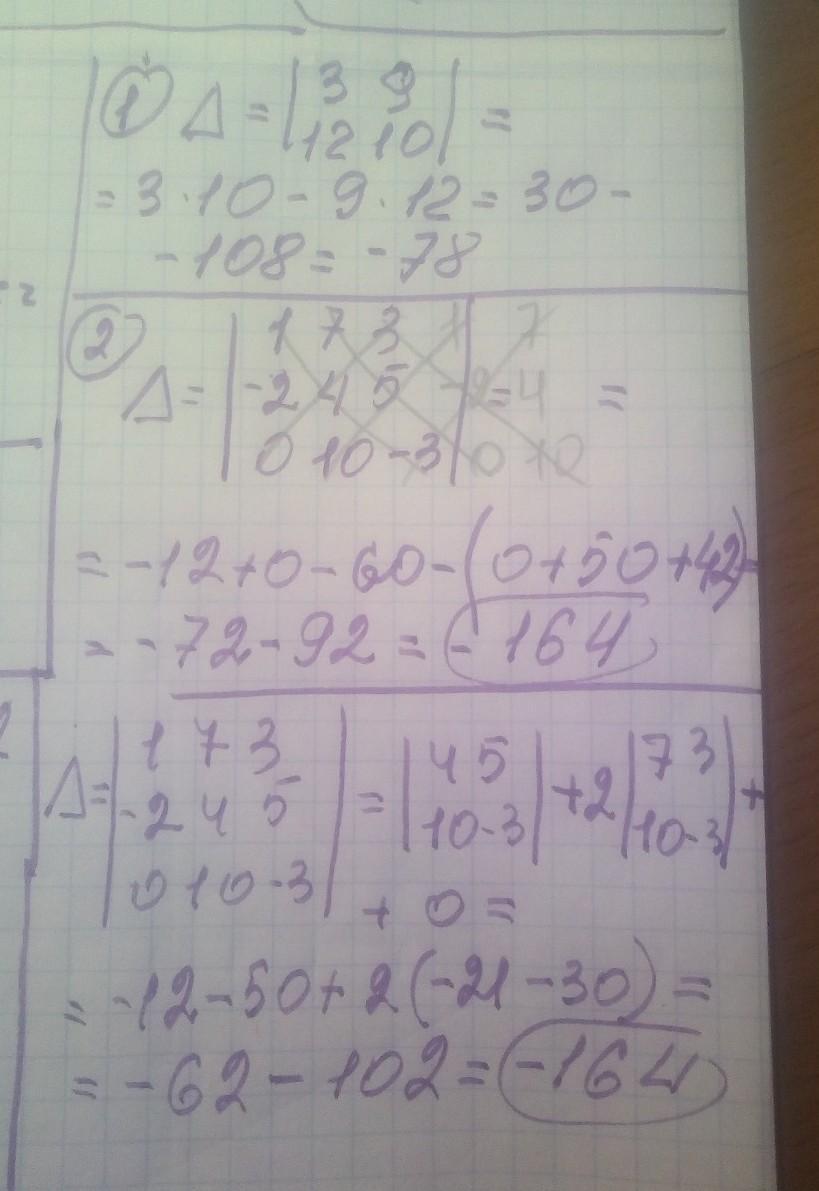 1 Δ = | 3 9 | =
| 12 10 |
= 3 · 10 - 9 · 12 = 30 -
- 108 = - 78
2
| 1 7 3 | 1 7
Δ = | -2 4 5 | -2 = 4 =
| 0 10 -3 | 0 10
= -12 + 0 - 60 - (0 + 50 + 42) =
= - 72 - 92 = - 164
| 1 7 3 | | 4 5 | | 7 3 |
Δ = | -2 4 5 | = | 10 -3 | + 2 | 10 -3 | +
| 0 10 -3 | + 0 =
= -12 - 50 + 2 (-21 - 30) =
= - 62 - 102 = -164